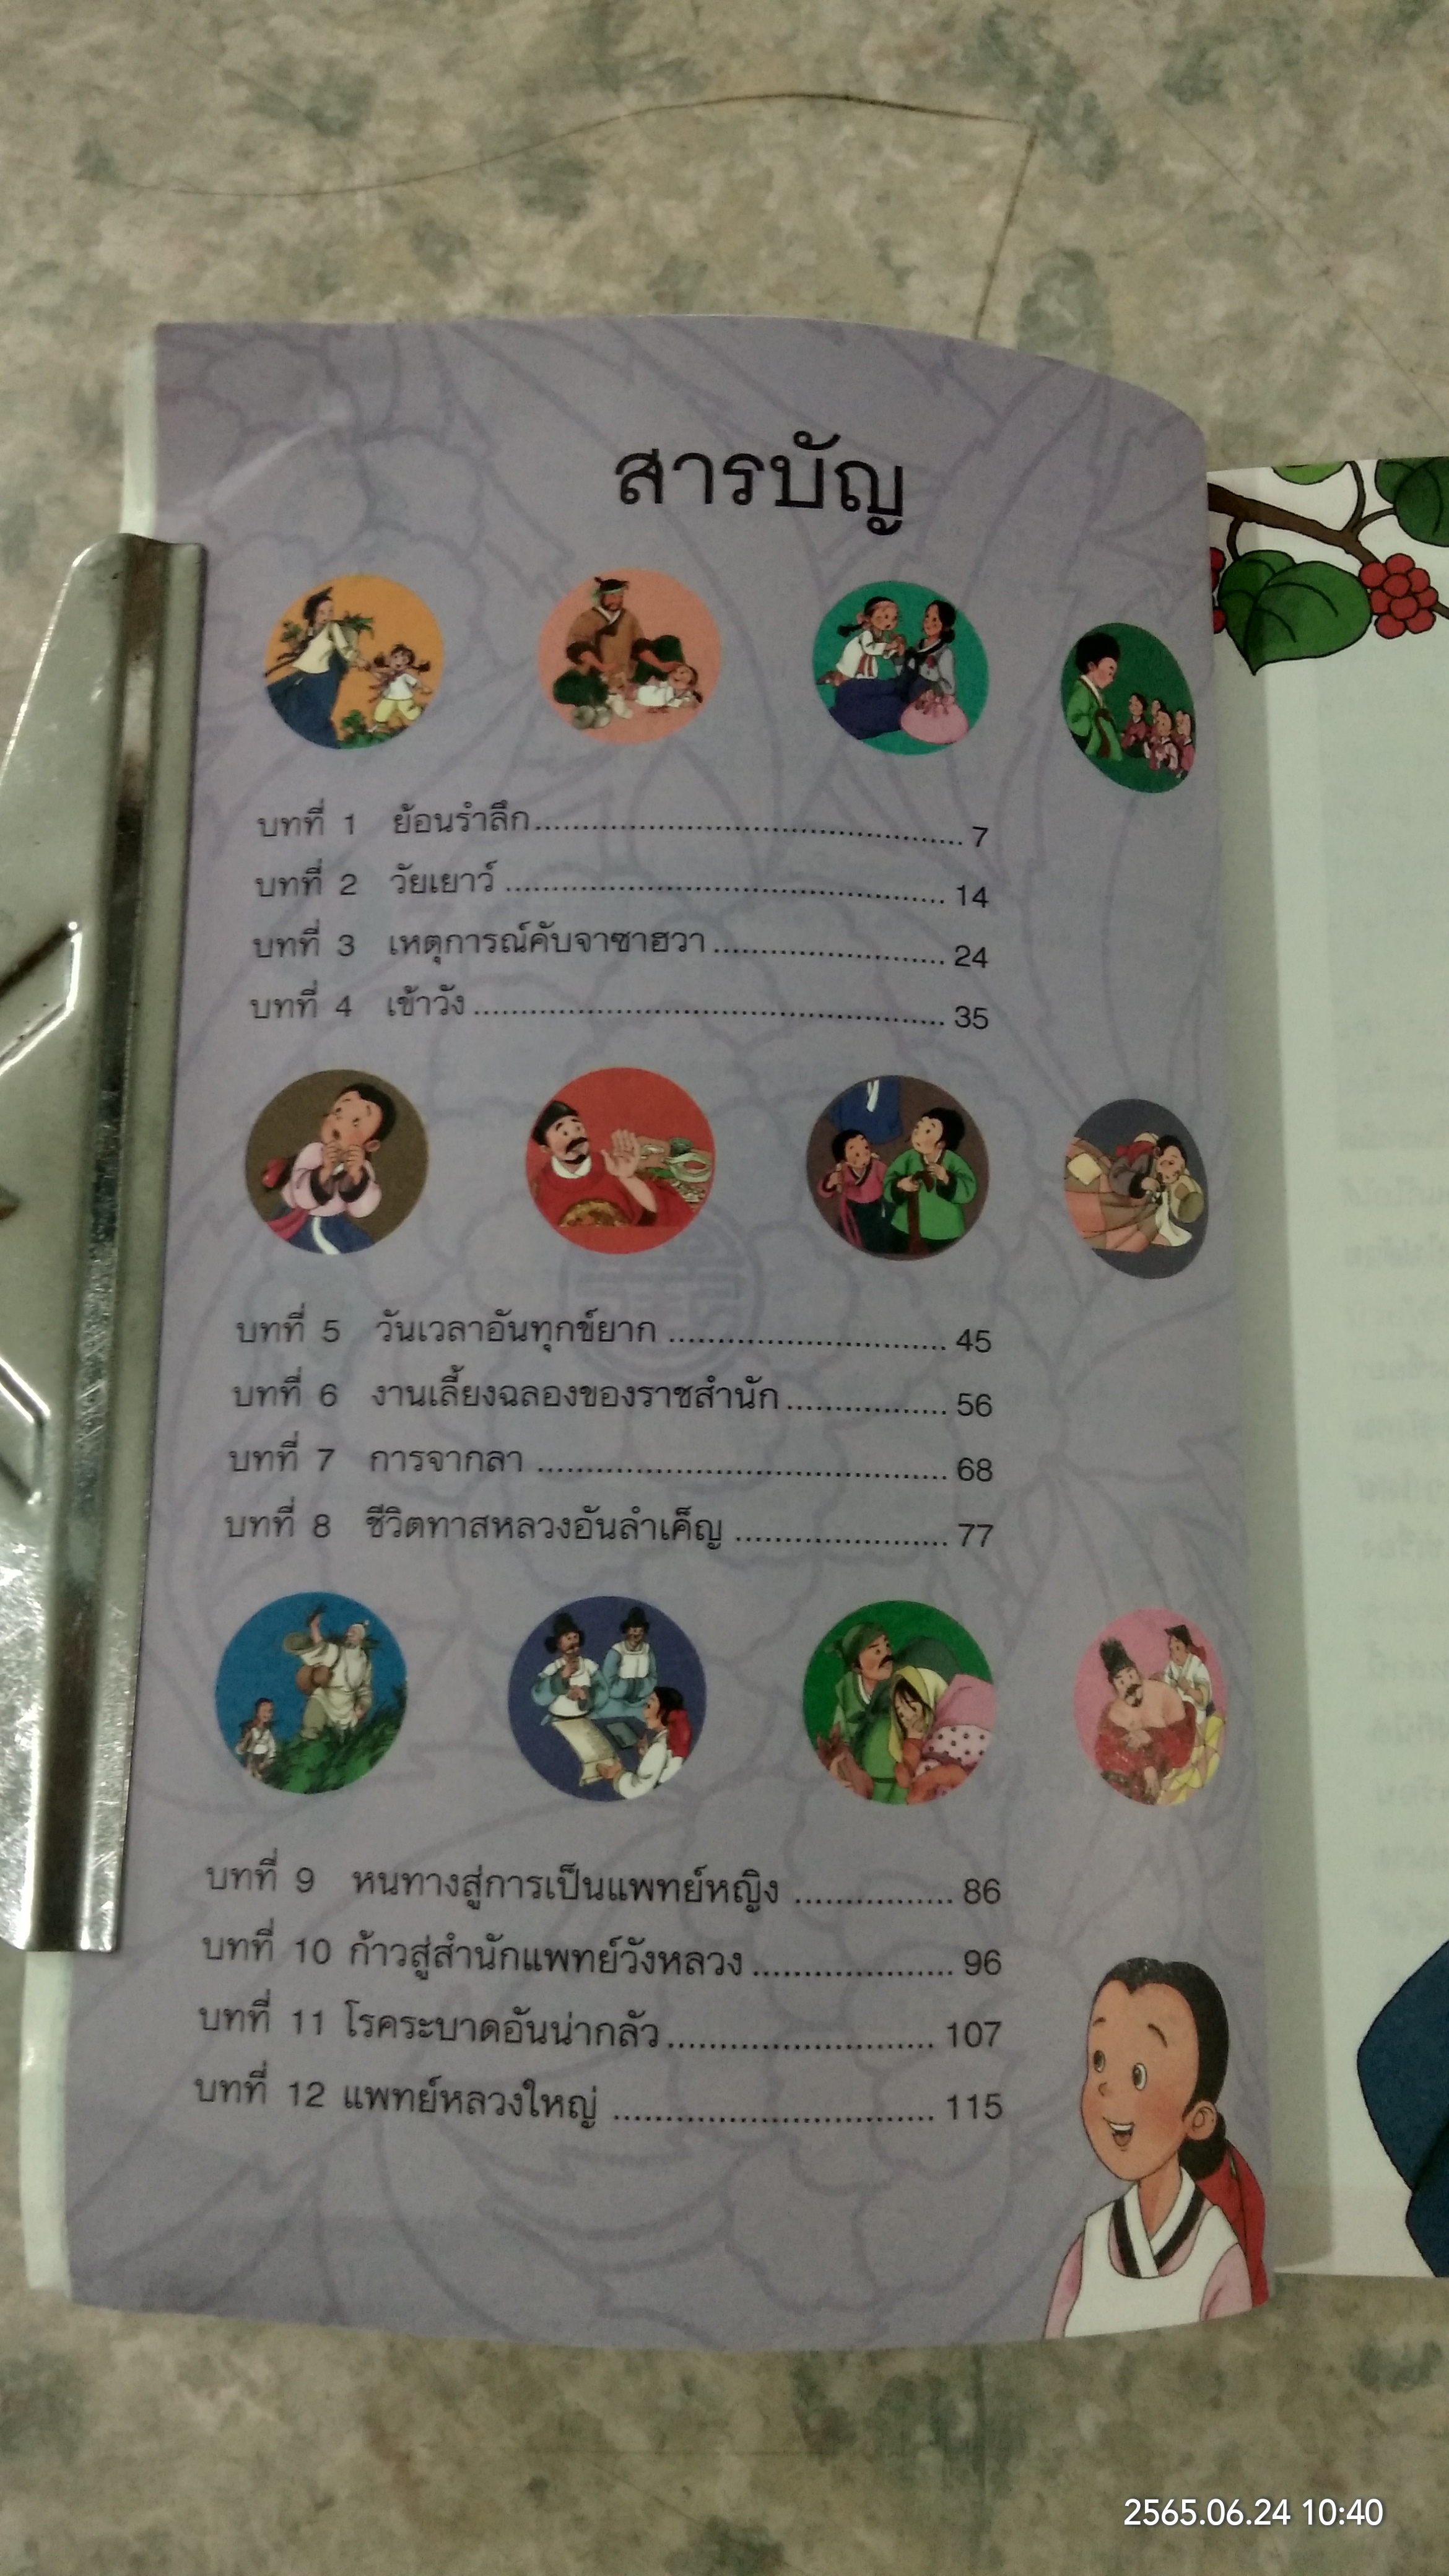 สารบัญ
บทที่ 1 ย้อนรำลึก.................................................. 7
บทที่ 2 วัยเยาว์ ................................................ 14
บทที่ 3 เหตุการณ์คับจาซาฮวา......................... 24
บทที่ 4 เข้าวัง .................................................... 35
บทที่ 5 วันเวลาอันทุกข์ยาก .............................. 45
บทที่ 6 งานเลี้ยงฉลองของราชสำนัก................. 56
บทที่ 7 การจากลา ............................................ 68
บทที่ 8 ชีวิตทาสหลวงอันลำเค็ญ ....................... 77
บทที่ 9 หนทางสู่การเป็นแพทย์หญิง ................ 86
บทที่ 10 ก้าวสู่สำนักแพทย์วังหลวง.................... 96
บทที่ 11 โรคระบาดอันน่ากลัว.......................... 107
บทที่ 12 แพทย์หลวงใหญ่ ............................... 115
2565.06.24 10:40